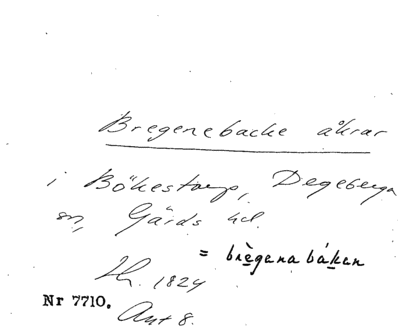 Bregenebacke åkrar
i Bökestorp, Degeberga
sn, Gärds hd.
= brègana bákan
Lh. 1824
Nr 7710.
Akt 8.